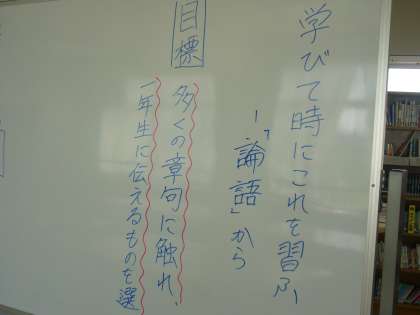 学びて時にこれを習ふ
―『論語』から
目標
多くの章句に触れ、
一年生に伝えるものを選